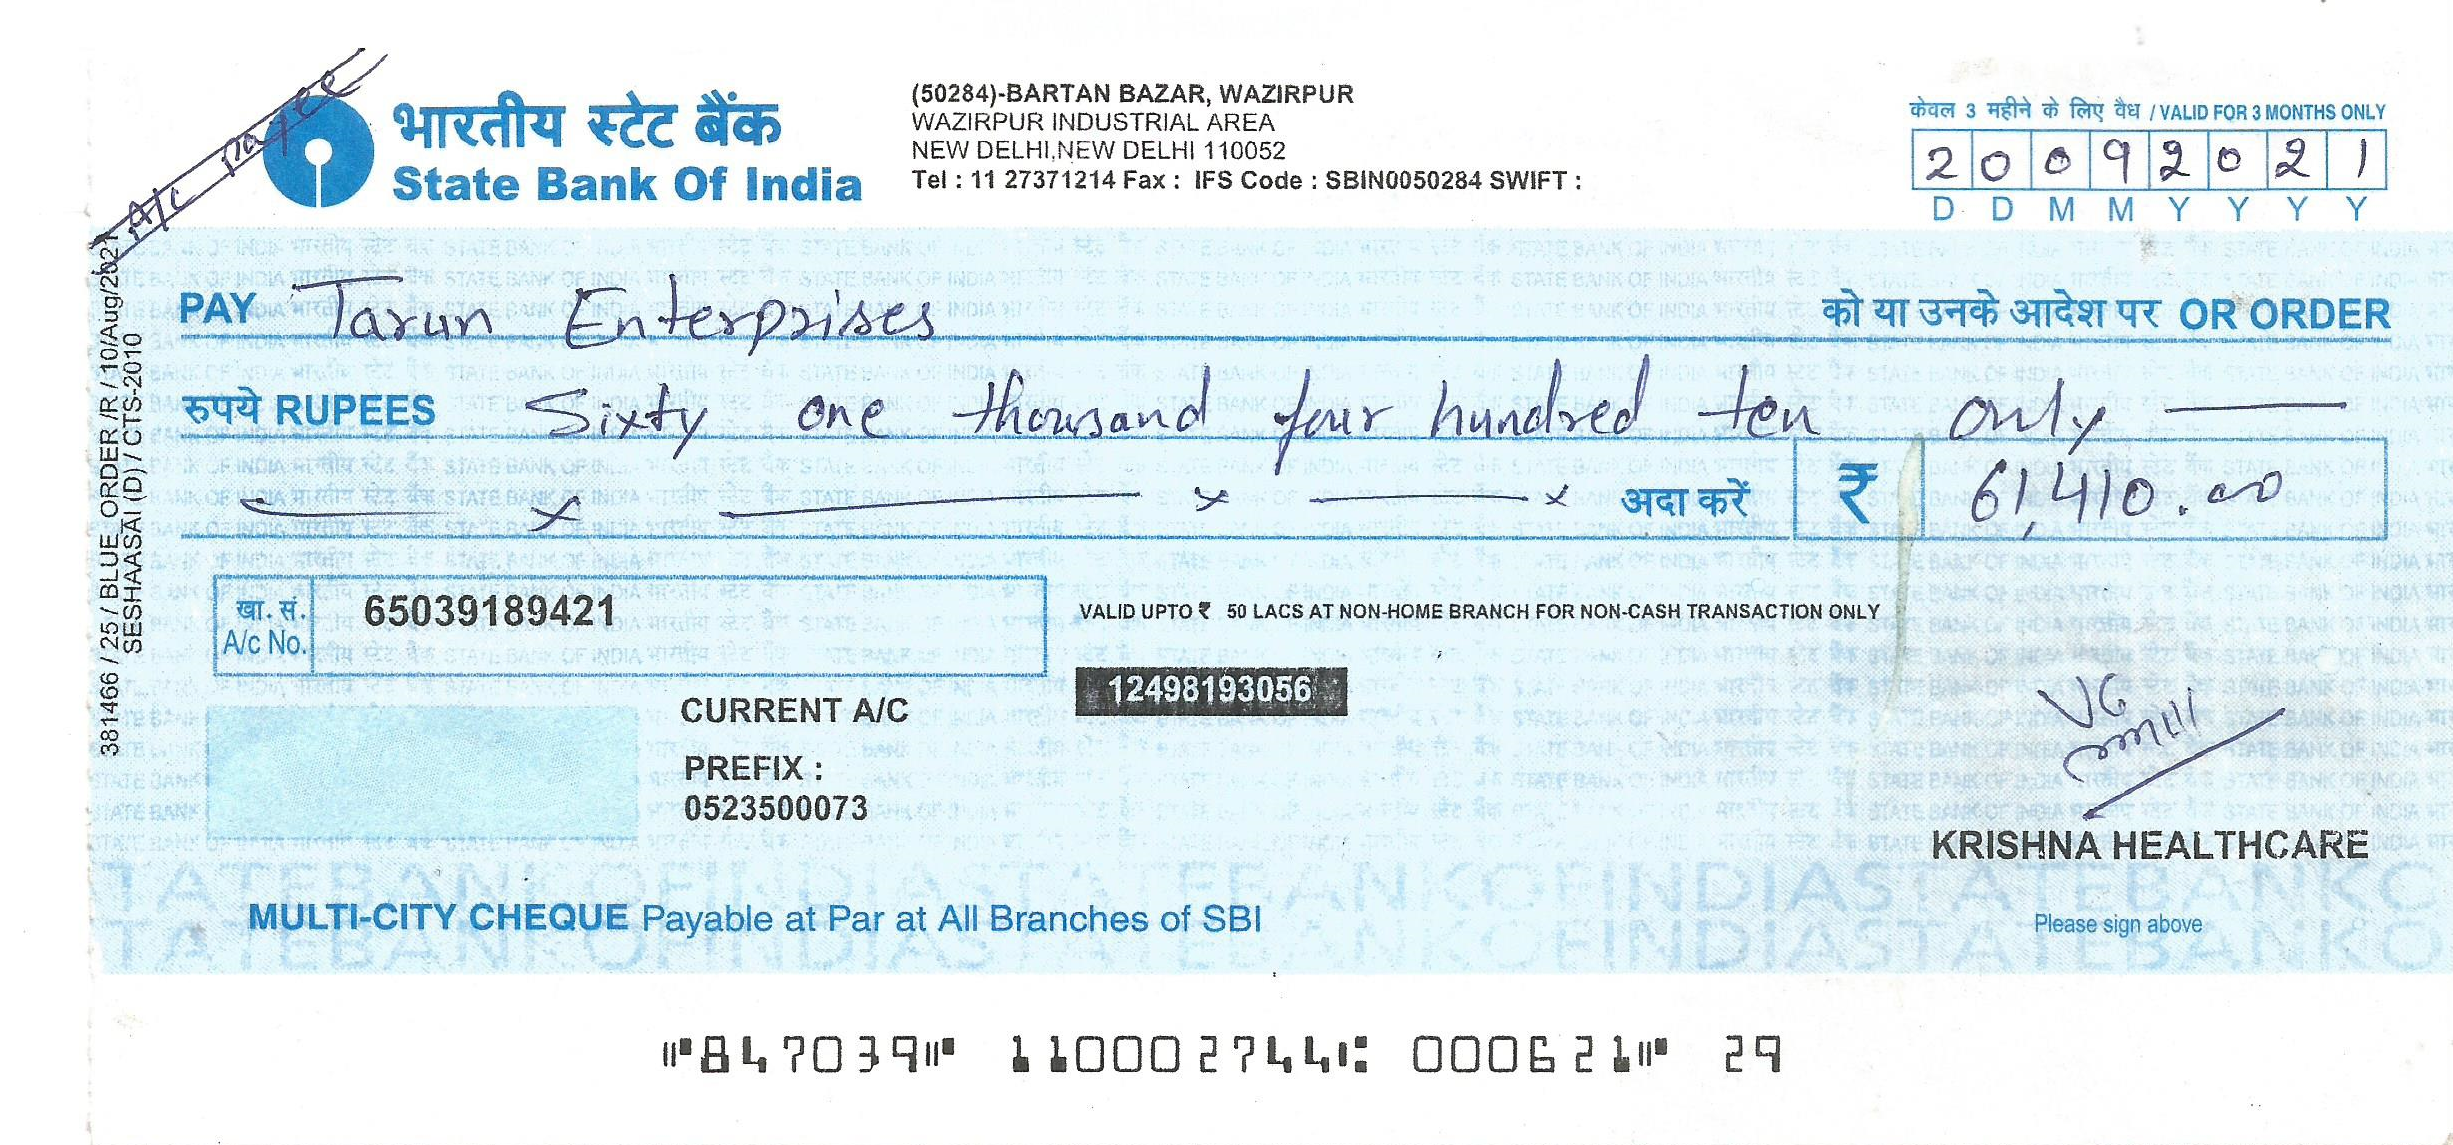 A/c Payee
भारतीय स्टेट बैंक
State Bank Of India
(50284)-BARTAN BAZAR, WAZIRPUR
WAZIRPUR INDUSTRIAL AREA
NEW DELHI,NEW DELHI 110052
Tel : 11 27371214 Fax : IFS Code : SBIN0050284 SWIFT :
केवल 3 महीने के लिए वैध / VALID FOR 3 MONTHS ONLY
2 0 0 9 2 0 2 1
D D M M Y Y Y Y
PAY Tarun Enterprises को या उनके आदेश पर OR ORDER
रुपये RUPEES Sixty one thousand four hundred ten only
अदा करें ₹ 61,410.00
खा. सं. 65039189421
A/c No.
VALID UPTO ₹ 50 LACS AT NON-HOME BRANCH FOR NON-CASH TRANSACTION ONLY
12498193056
CURRENT A/C
PREFIX :
0523500073
VG
KRISHNA HEALTHCARE
Please sign above
MULTI-CITY CHEQUE Payable at Par at All Branches of SBI
3814466 / 25 / BLUE_ORDER /R / 10/Aug/2021
SESHAASAI (D) / CTS-2010
⑈847039⑈ 110002744⑆ 000621⑈ 29